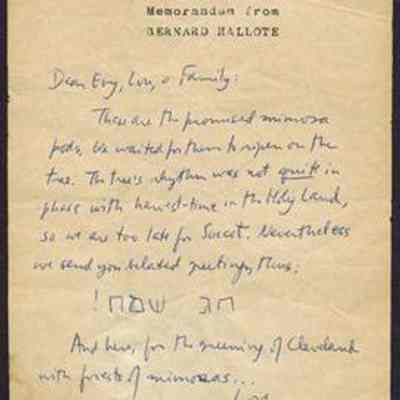 Memorandum from
BERNARD MALLOTE
Dear Evy, Lou, & Family:
These are the promised mimosa
pods. We waited for them to ripen on the
tree. The tree's rhythm was not quite in
phase with harvest-time in the Holy Land,
so we are too late for Succot. Nevertheless
we send you belated greetings, thus:
חג שמח!
And here, for the greening of Cleveland
with of mimosas...